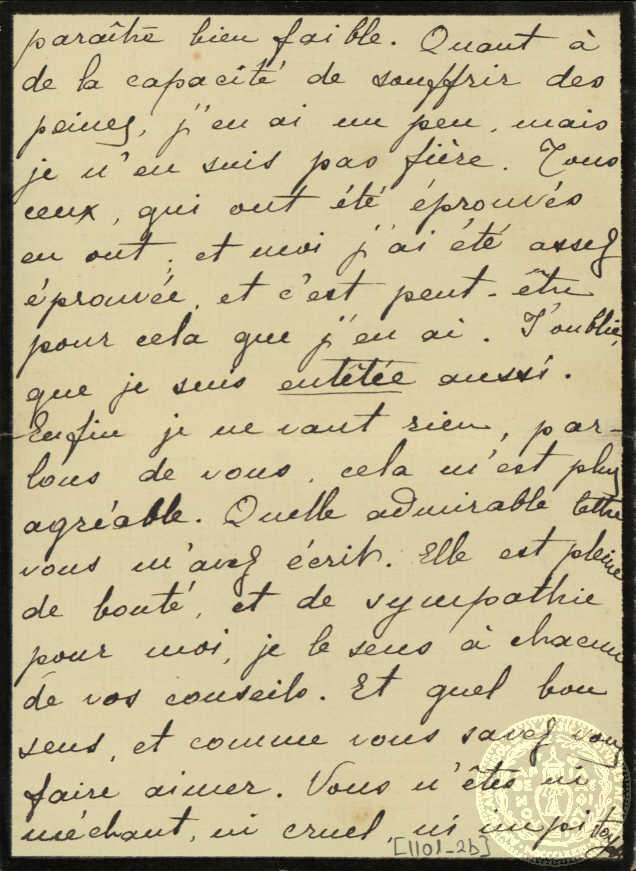 paraître bien faible. Quant à
de la capacité de souffrir des
peines, j'en ai un peu, mais
je n'en suis pas fière. Tous
ceux, qui ont été éprouvés
en ont; et moi j'ai été assez
éprouvée, et c'est peut-être
pour cela que j'en ai. J'oublie,
que je suis entêtée aussi.
Enfin je ne vaut rien, par-
lons de vous, cela m'est plus
agréable. Quelle admirable lettre
vous m'avez écrit. Elle est pleine
de bonté, et de sympathie
pour moi, je le sens à chacun
de vos conseils. Et quel bon
sens, et comme vous savez vous
faire aimer. Vous n'êtes ni
méchant, ni cruel, ni impitoy
[1101-2b]